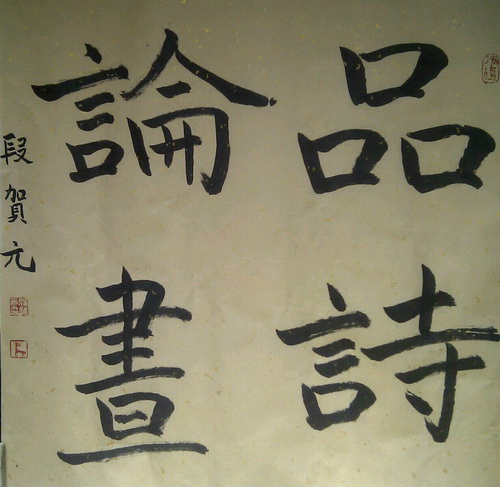 品詩
論晝
段賀元